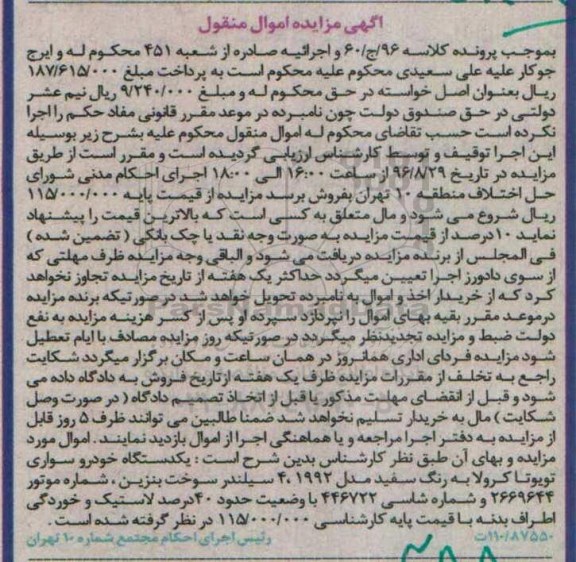 آگهی مزایده اموال منقول
بموجب پرونده کلاسه ۹۶/ج/۶۰ و اجرائیه صادره از شعبه ۴۵۱ محکوم له و ایرج
جوکار علیه علی سعیدی محکوم علیه محکوم است به پرداخت مبلغ ۱۸۷/۶۱۵/۰۰۰
ریال بعنوان اصل خواسته در حق محکوم له و مبلغ ۹/۲۴۰/۰۰۰ ریال نیم عشر
دولتی در حق صندوق دولت چون نامبرده در موعد مقرر قانونی مفاد حکم را اجرا
نکرده است حسب تقاضای محکوم له اموال منقول محکوم علیه بشرح زیر بوسیله
این اجرا توقیف و توسط کارشناس ارزیابی گردیده است و مقرر است از طریق
مزایده در تاریخ ۹۶/۸/۲۹ از ساعت ۱۶:۰۰ الی ۱۸:۰۰ اجرای احکام مدنی شورای
حل اختلاف منطقه ۱۰ تهران بفروش برسد مزایده از قیمت پایه ۱۱۵/۰۰۰/۰۰۰
ریال شروع می شود و مال متعلق به کسی است که بالاترین قیمت را پیشنهاد
نماید ۱۰درصد از قیمت مزایده به صورت وجه نقد یا چک بانکی ( تضمین شده )
فی المجلس از برنده مزایده دریافت می شود و الباقی وجه مزایده ظرف مهلتی که
از سوی دادورز اجرا تعیین میگردد حداکثر یک هفته از تاریخ مزایده تجاوز نخواهد
کرد که از خریدار اخذ و اموال به نامبرده تحویل خواهد شد در صورتیکه برنده مزایده
درموعد مقرر بقیه بهای اموال را نپردازد سپرده او پس از کسر هزینه مزایده به نفع
دولت ضبط و مزایده تجدیدنظر میگردد در صورتیکه روز مزایده مصادف با ایام تعطیل
شود مزایده فردای اداری همانروز در همان ساعت و مکان برگزار میگردد شکایت
راجع به تخلف از مقررات مزایده ظرف یک هفته از تاریخ فروش به دادگاه داده می
شود و قبل از انقضای مهلت مذکور یا قبل از اتخاذ تصمیم دادگاه ( در صورت وصل
شکایت ) مال به خریدار تسلیم نخواهد شد ضمنا طالبین می توانند ظرف ۵ روز قابل
از مزایده به دفتر اجرا مراجعه و یا هماهنگی اجرا از اموال بازدید نمایند . اموال مورد
مزایده و بهای آن طبق نظر کارشناس بدین شرح است : یکدستگاه خودرو سواری
تویوتا کرولا به رنگ سفید مدل ۱۹۹۲ ،۴ سیلندر سوخت بنزین ، شماره موتور
۲۶۶۹۶۴۴ و شماره شاسی ۴۴۶۷۲۲ با وضعیت حدود ۴۰درصد لاستیک و خوردگی
اطراف بدنه با قیمت پایه کارشناسی ۱۱۵/۰۰۰/۰۰۰ در نظر گرفته شده است .
۱۱۰/۸۷۵۵۰ت رئیس اجرای احکام مجتمع شماره ۱۰ تهران